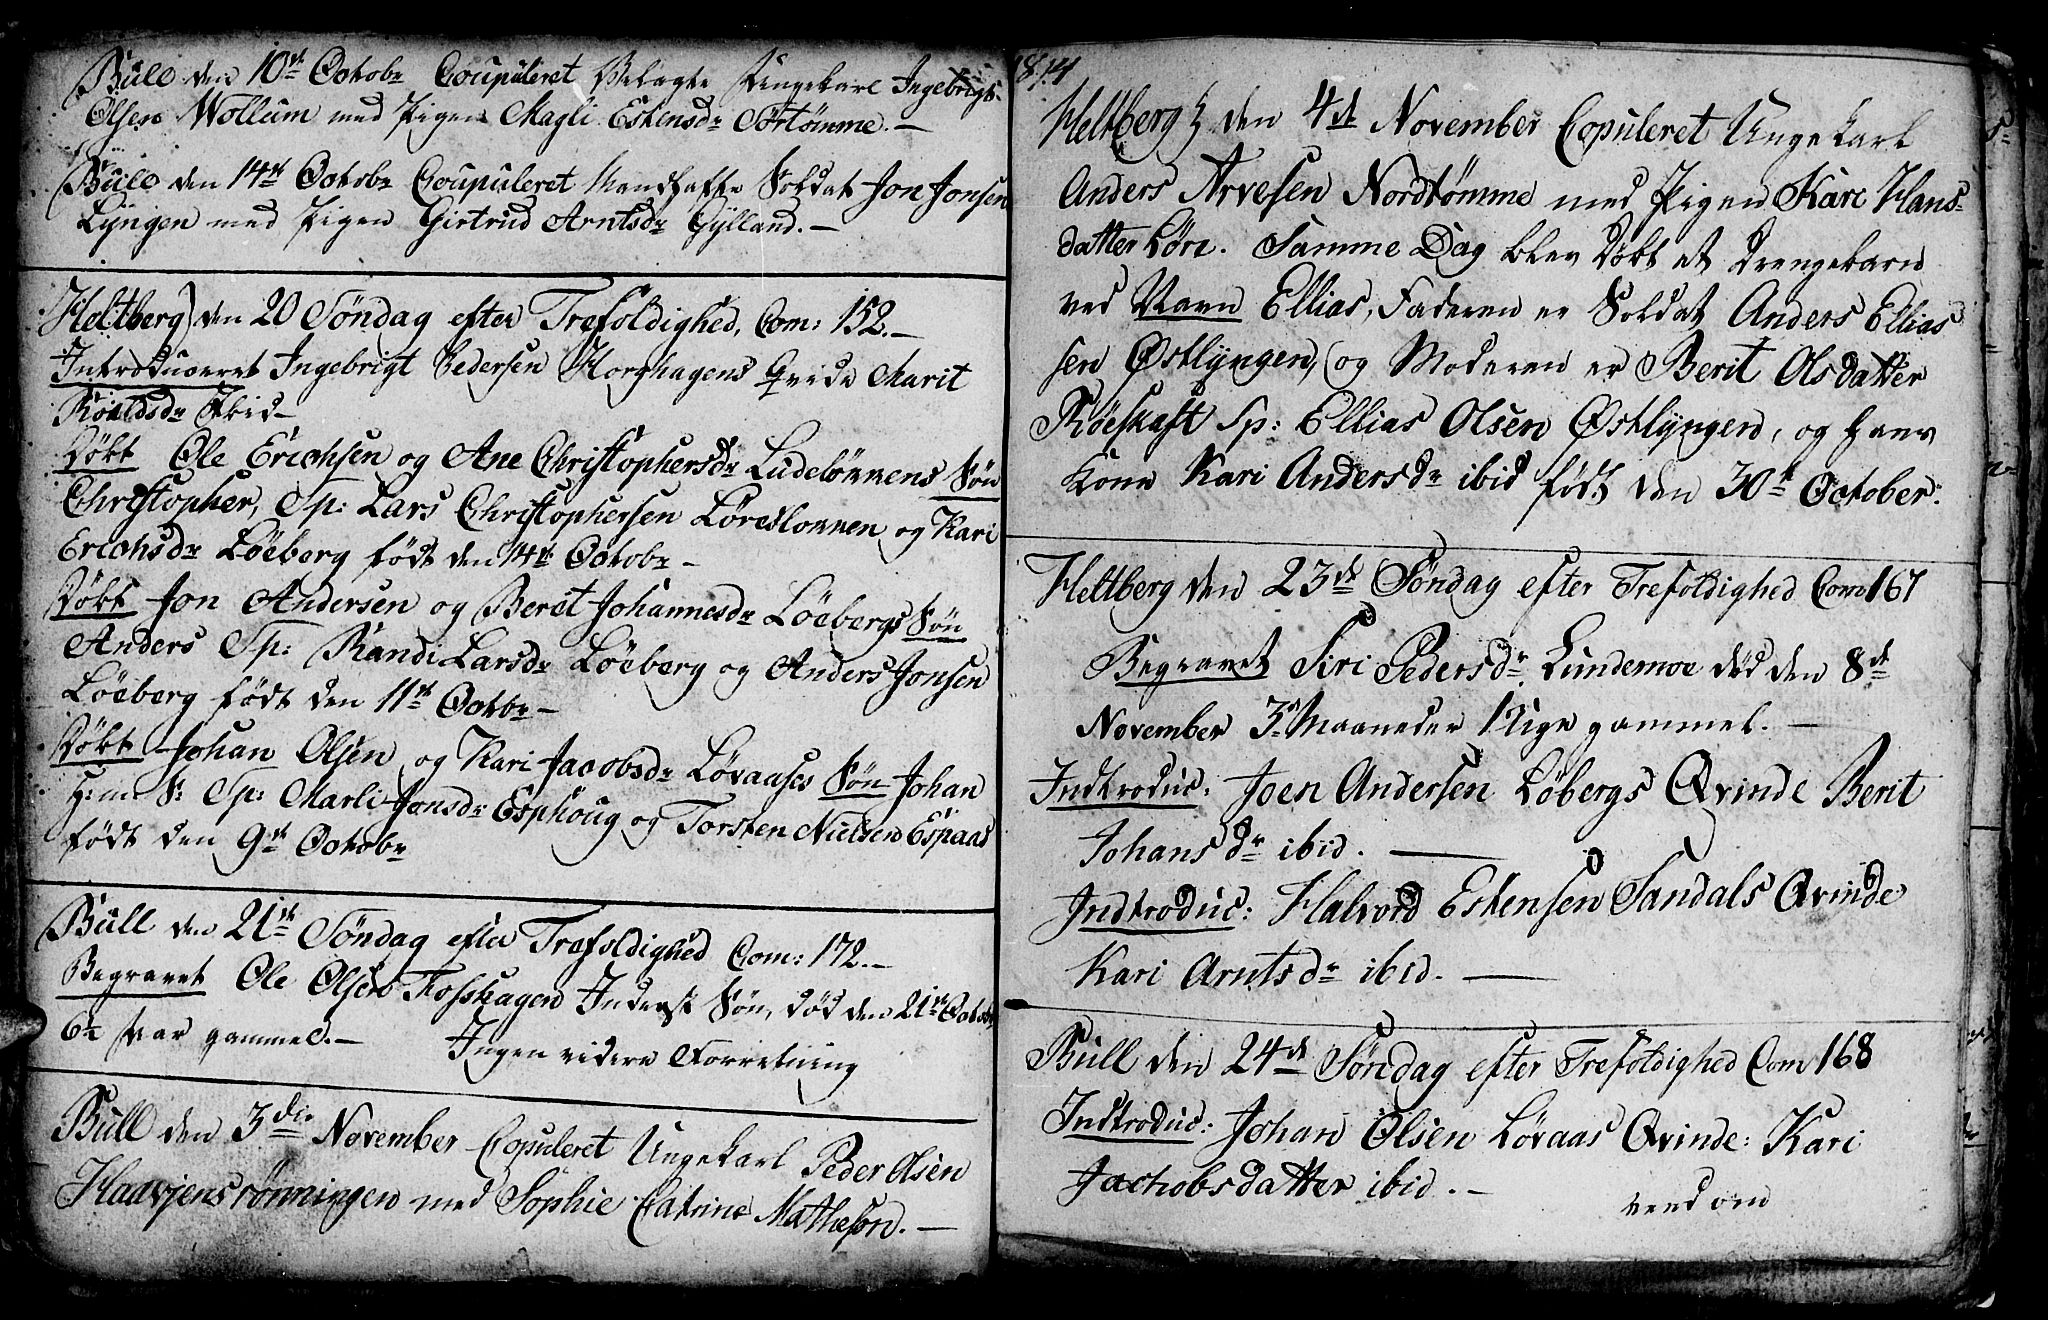 Büll den 10de Octobr Coupuleret Ungekarl Ingebrigt
Olsen Wollum med Pigen Magli Eskensdr Sørtømme. –
Büll den 14de Octobr Coupuleret Mandhafte Soldat Jon Jonsen
Lÿngen med Pigen Girtrud Arntsdr Gÿlland. –
Heltberg) den 20 Søndag efter Trefoldighed, Com: 152. –
Introduceret Ingebrigt Pedersen Horghagens Qvide Marit
Roaldsdr Ibid –
Døbt Ole Erichsen og Ane Christophersdr Ludeløkkens Søn
Christopher, Sp: Lars Christophersen Løreslokken og Kari
Erichsdr Løeberg født den 14de Octobr –
Døbt Jon Andersen og Beret Johannesdr Løebergs Søn
Anders Sp: Randi Larsdr Løeberg og Anders Jonsen
Løeberg født den 11te Octobr –
Døbt Johan Olsen og Kari Jacobsdr Løvaases Søn Johan
H: m: F: Sp: Marli Jonsdr Esphoug og Torsten Nielsen Espaas
født den 9de Octobr
Büll den 21de Søndag efter Trefoldighed Com: 172. –
Begravet Ole Olsen Fosshagen Inderst Søn, død den 21de Octobr
6½ Aar gammel. – Ingen videre Forretning
Büll den 3die November Copuleret Ungekarl Peder Olsen
Haavjensrønningen med Sophie Catrine Matheson. –
1814
Heltberg den 4de November Copuleret Ungekarl
Anders Arvesen Nordtømme med Pigen Kari Hans-
datter Løre. Samme Dag blev Døbt et Drengebarn
ved Navn Ellias, Faderen er Soldat Anders Ellias
sen Østlyngen, og Moderen er Berit Olsdatter
Røeskaft Sp: Ellias Olsen Østlyngen, og hans
Kone Kari Andersdr ibid født den 30te October.
Heltberg den 23de Søndag efter Trefoldighed Com 167
Begravet Siri Pedersdr Lundemoe død den 8de
November 3 Maaneder 1 Uge gammel. –
Indtroduc: Joen Andersen Løbergs Qvinde Berit
Johansdr ibid. –
Indtroduc: Halvord Eskensen Sandals Qvinde
Kari Arntsdr ibid. –
Büll den 24de Søndag efter Trefoldighed Com 168
Indtroduc: Johan Olsen Løvaas Qvinde: Kari
Jachobsdatter ibid. –
vend om